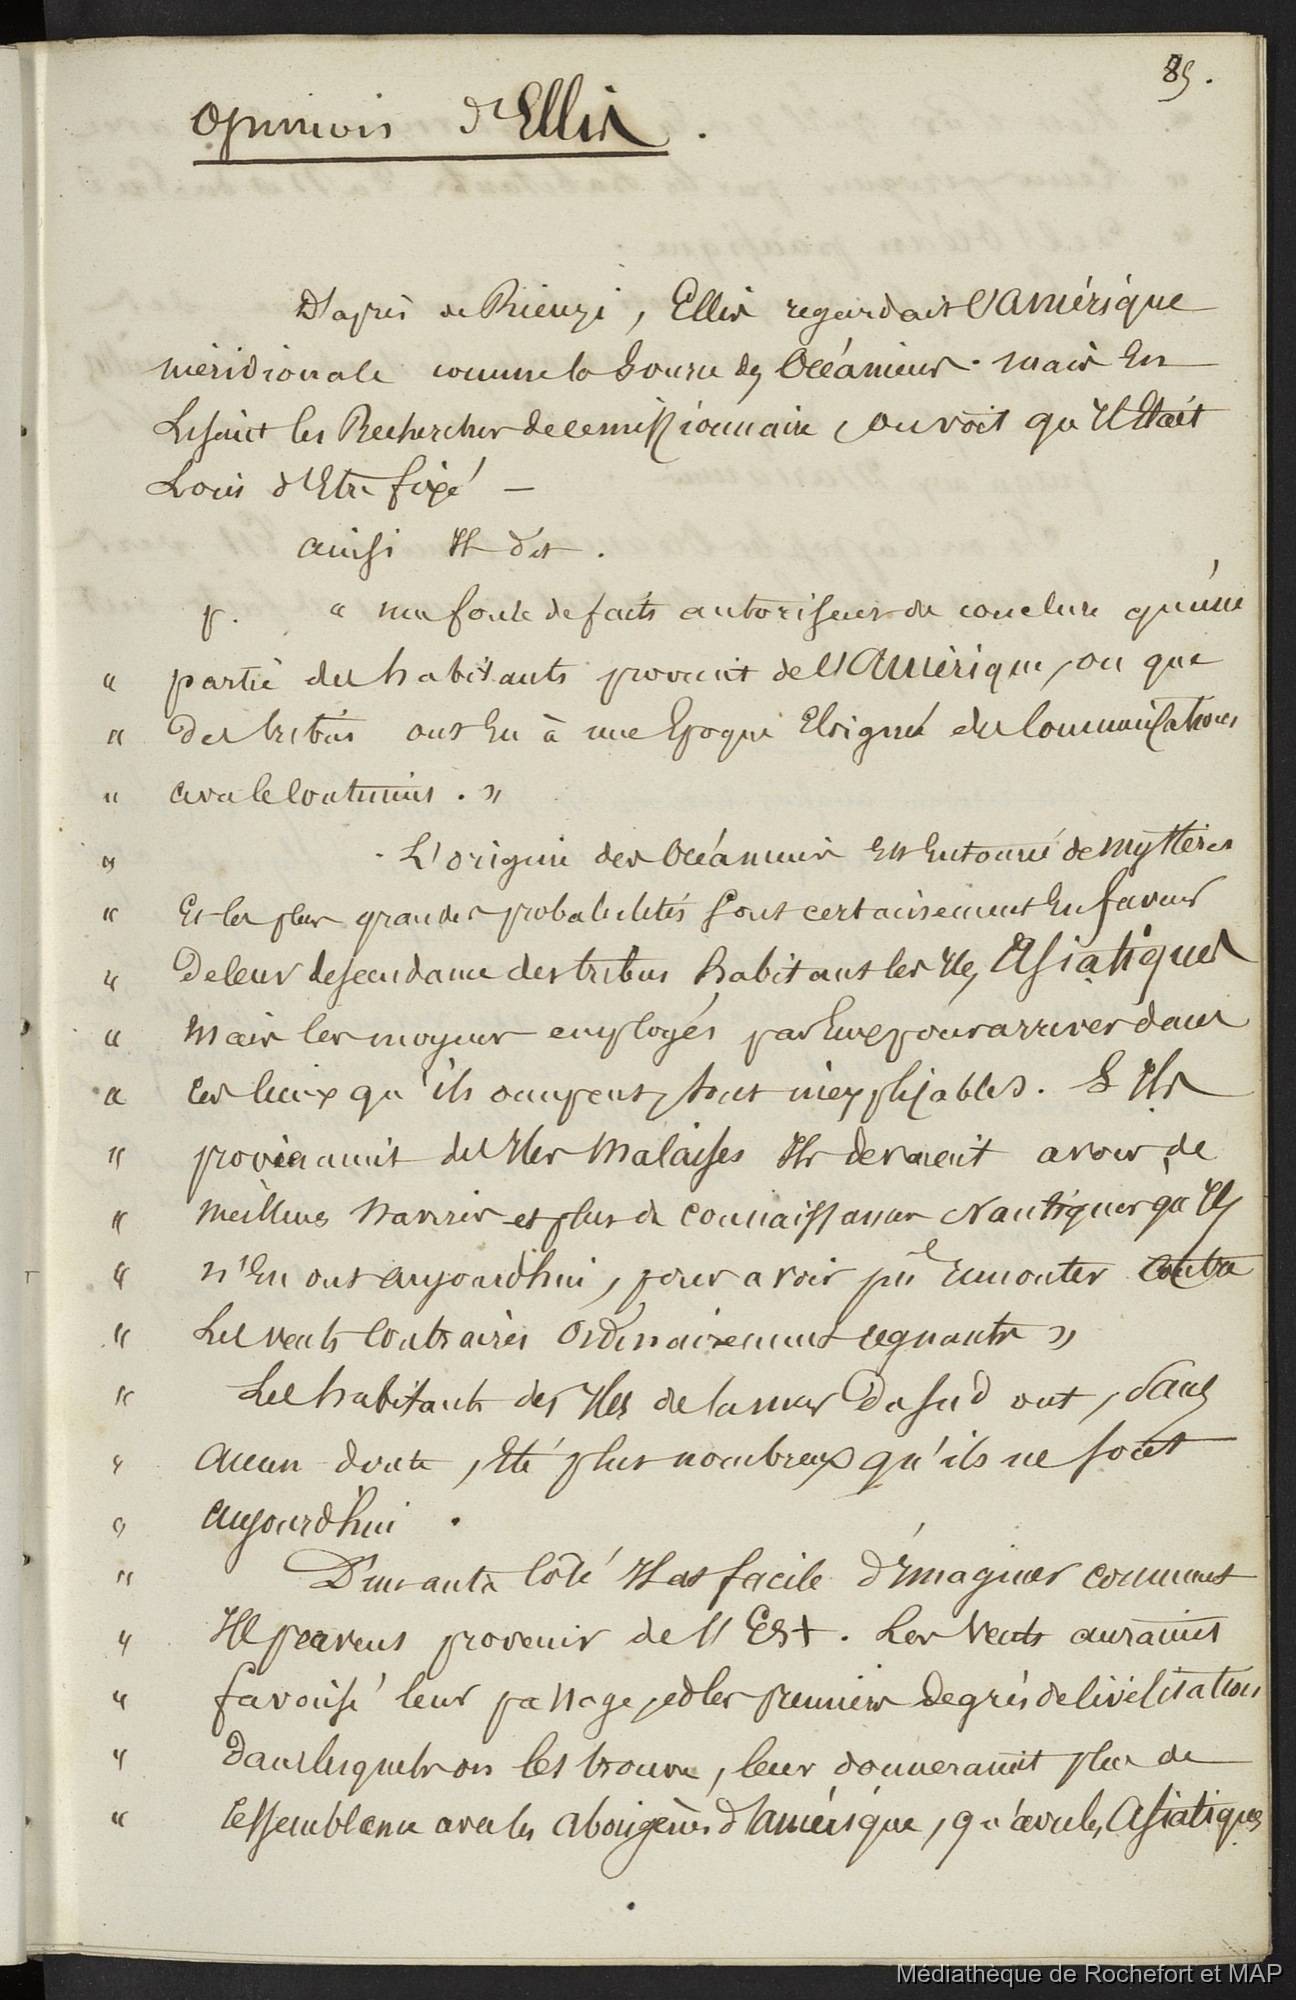 85.
Opinion d'Ellis.
D'après de Rienzi, Ellis regardait l'amérique
méridionale comme la source des Océaniens. mais En
Lisant les Recherches de ce missionnaire, on voit qu'Il Etait
Loin d'Etre fixé —
ainsi Il dit.
p. " une foule de faits autorisent de conclure qu'une
" partie des habitants provient de l'Amérique, ou que
" des tribus ont Eu à une Epoque Eloignée des Communications
" avec le Continent. "
" L'origine des Océaniens Est Entourée de mystères
" Et les plus grandes probabilités sont certainement En faveur
" de leur descendance des tribus habitant les Iles Asiatiques
" Mais les moyens employés par Eux pour arriver dans
" les lieux qu'ils occupent, sont inexplicables. S'Ils
" provenaient des Iles Malaises Ils devraient avoir de
" meilleurs navires et plus de connaissances Nautiques qu'Ils
" n'En ont aujourd'hui, pour avoir pu remonter contre
" Les vents Contraires Ordinairement régnants "
" Les habitants des Iles de la mer du Sud ont, sans
" aucun doute, Eté plus nombreux qu'ils ne sont
" aujourd'hui.
" D'un autre Côté Il est facile d'Imaginer comment
" Ils peuvent provenir de l'Est. Les Vents auraient
" favorisé leur passage, et les premiers degrés de civilisation
" dans lesquels on les trouve, leur donneraient plus de
" ressemblance avec les aborigènes d'amérique, qu'avec les Asiatiques
Médiathèque de Rochefort et MAP